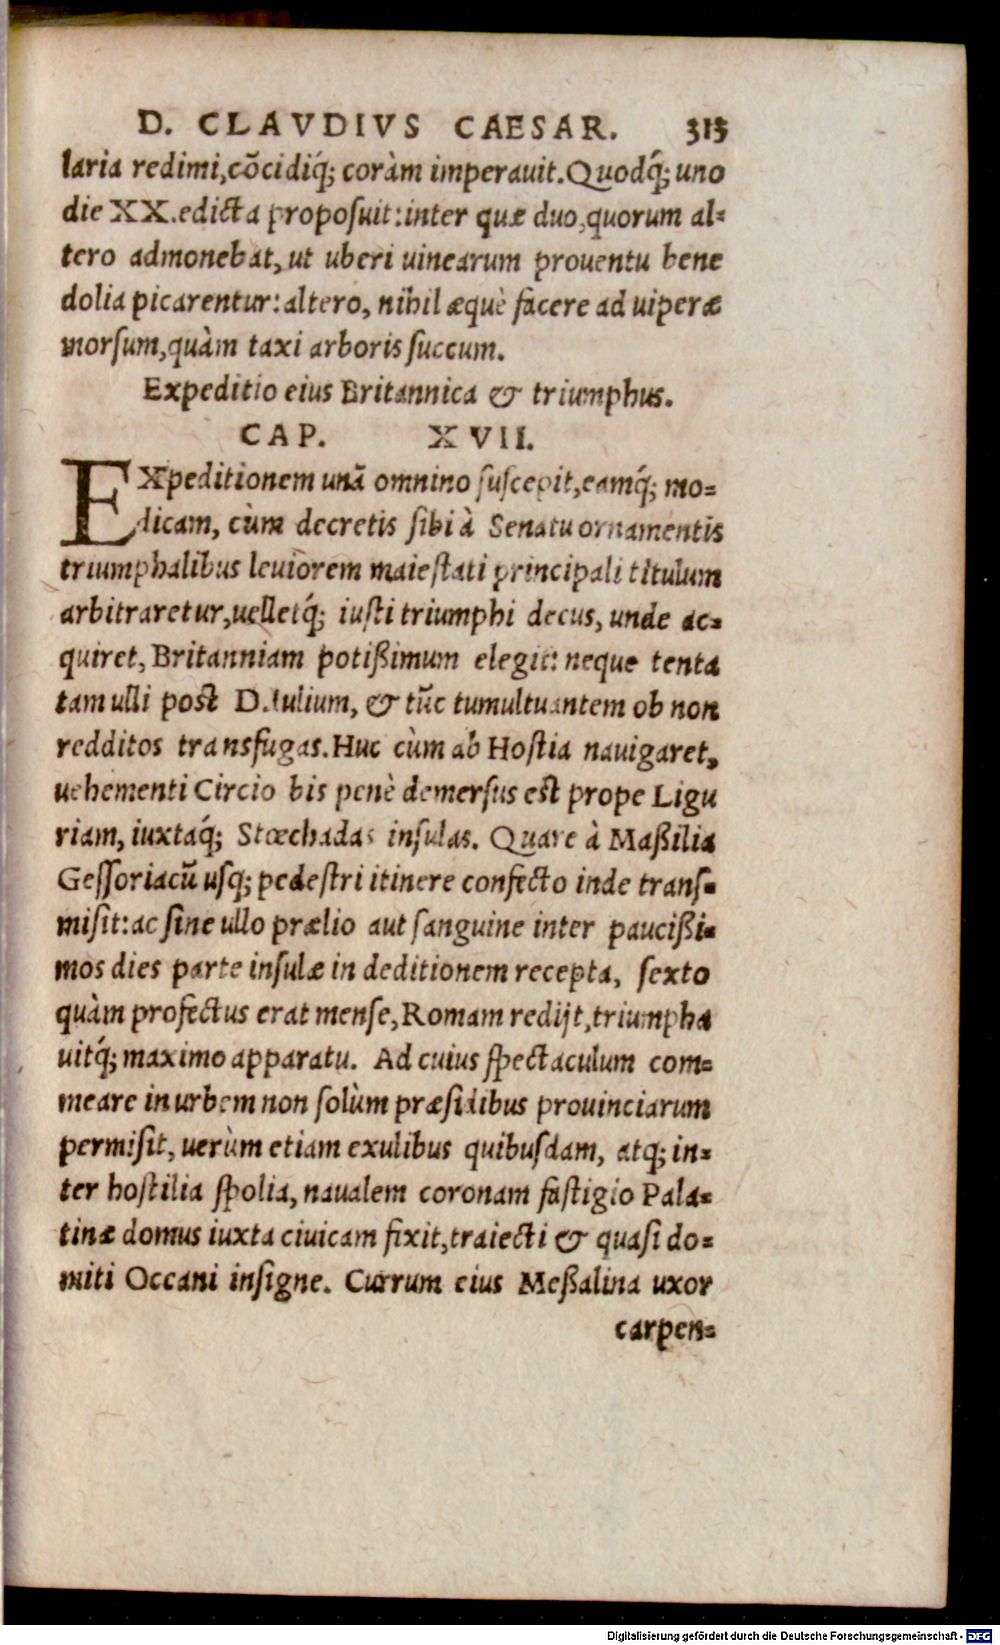 D. CLAVDIVS CAESAR. 315
laria redimi,cōcidiq́; coràm imperauit.Quodq́; uno
die XX.edicta proposuit:inter quæ duo,quorum al-
tero admonebat, ut uberi uinearum prouentu bene
dolia picarentur: altero, nihil æquè facere ad uiperæ
morsum,quàm taxi arboris succum.
Expeditio eius Britannica & triumphus.
CAP. XVII.
EXpeditionem unā omnino suscepit,eamq́; mo-
dicam, cùm decretis sibi à Senatu ornamentis
triumphalibus leuiorem maiestati principali titulum
arbitraretur,uelletq́; iusti triumphi decus, unde ac-
quiret, Britanniam potißimum elegit: neque tenta
tam ulli post D.Iulium, & tūc tumultuantem ob non
redditos transfugas.Huc cùm ab Hostia nauigaret,
uehementi Circio bis penè demersus est prope Ligu
riam, iuxtaq́; Stœchadas insulas. Quare à Maßilia
Gessoriacū usq; pedestri itinere confecto inde trans-
misit: ac sine ullo prælio aut sanguine inter paucißi-
mos dies parte insulæ in deditionem recepta, sexto
quàm profectus erat mense,Romam redijt,triumpha
uitq́; maximo apparatu. Ad cuius spectaculum com-
meare in urbem non solùm præsidibus prouinciarum
permisit, uerùm etiam exulibus quibusdam, atq; in-
ter hostilia spolia, naualem coronam fastigio Pala-
tinæ domus iuxta ciuicam fixit,traiecti & quasi do-
miti Occani insigne. Currum eius Meßalina uxor
carpen-
Digitalisierung gefördert durch die Deutsche Forschungsgemeinschaft - DFG